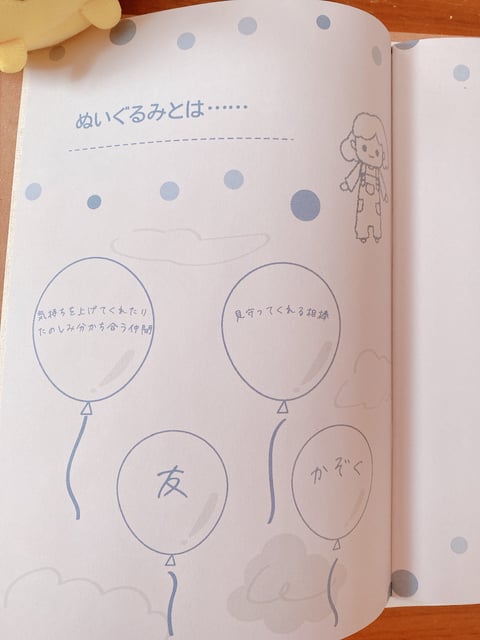 ぬいぐるみとは……
気持ちを上げてくれたり
たのしみ分かち合う仲間
見守ってくれる相棒
友
かぞく